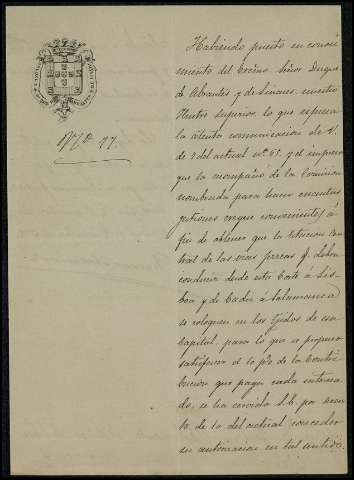 Nº 77.
Habiendo puesto en conoci
miento del Excmo. Señor Duque
de Abrantes y de Linares, nuestro
Ilustre superior, lo que expresa
la atenta comunicacion de V.
de 2 del actual nº 61. y el impreso
que la acompaña de la Comision
nombrada para hacer cuantas
gestiones creyere convenientes á
fin de obtener que la Estacion Cen
tral de las vias ferreas q. deben
conducir desde esta Corte á Lis-
boa y de Cadiz á Salamanca
se coloquen en los Ejidos de esa
Capital, para lo que se propone
satisfacer el pº de la Contri
bucion que pague cada interesa
do, se ha servido S.E. por decre
to de 10 del actual conceder
su autorizacion en tal sentido.